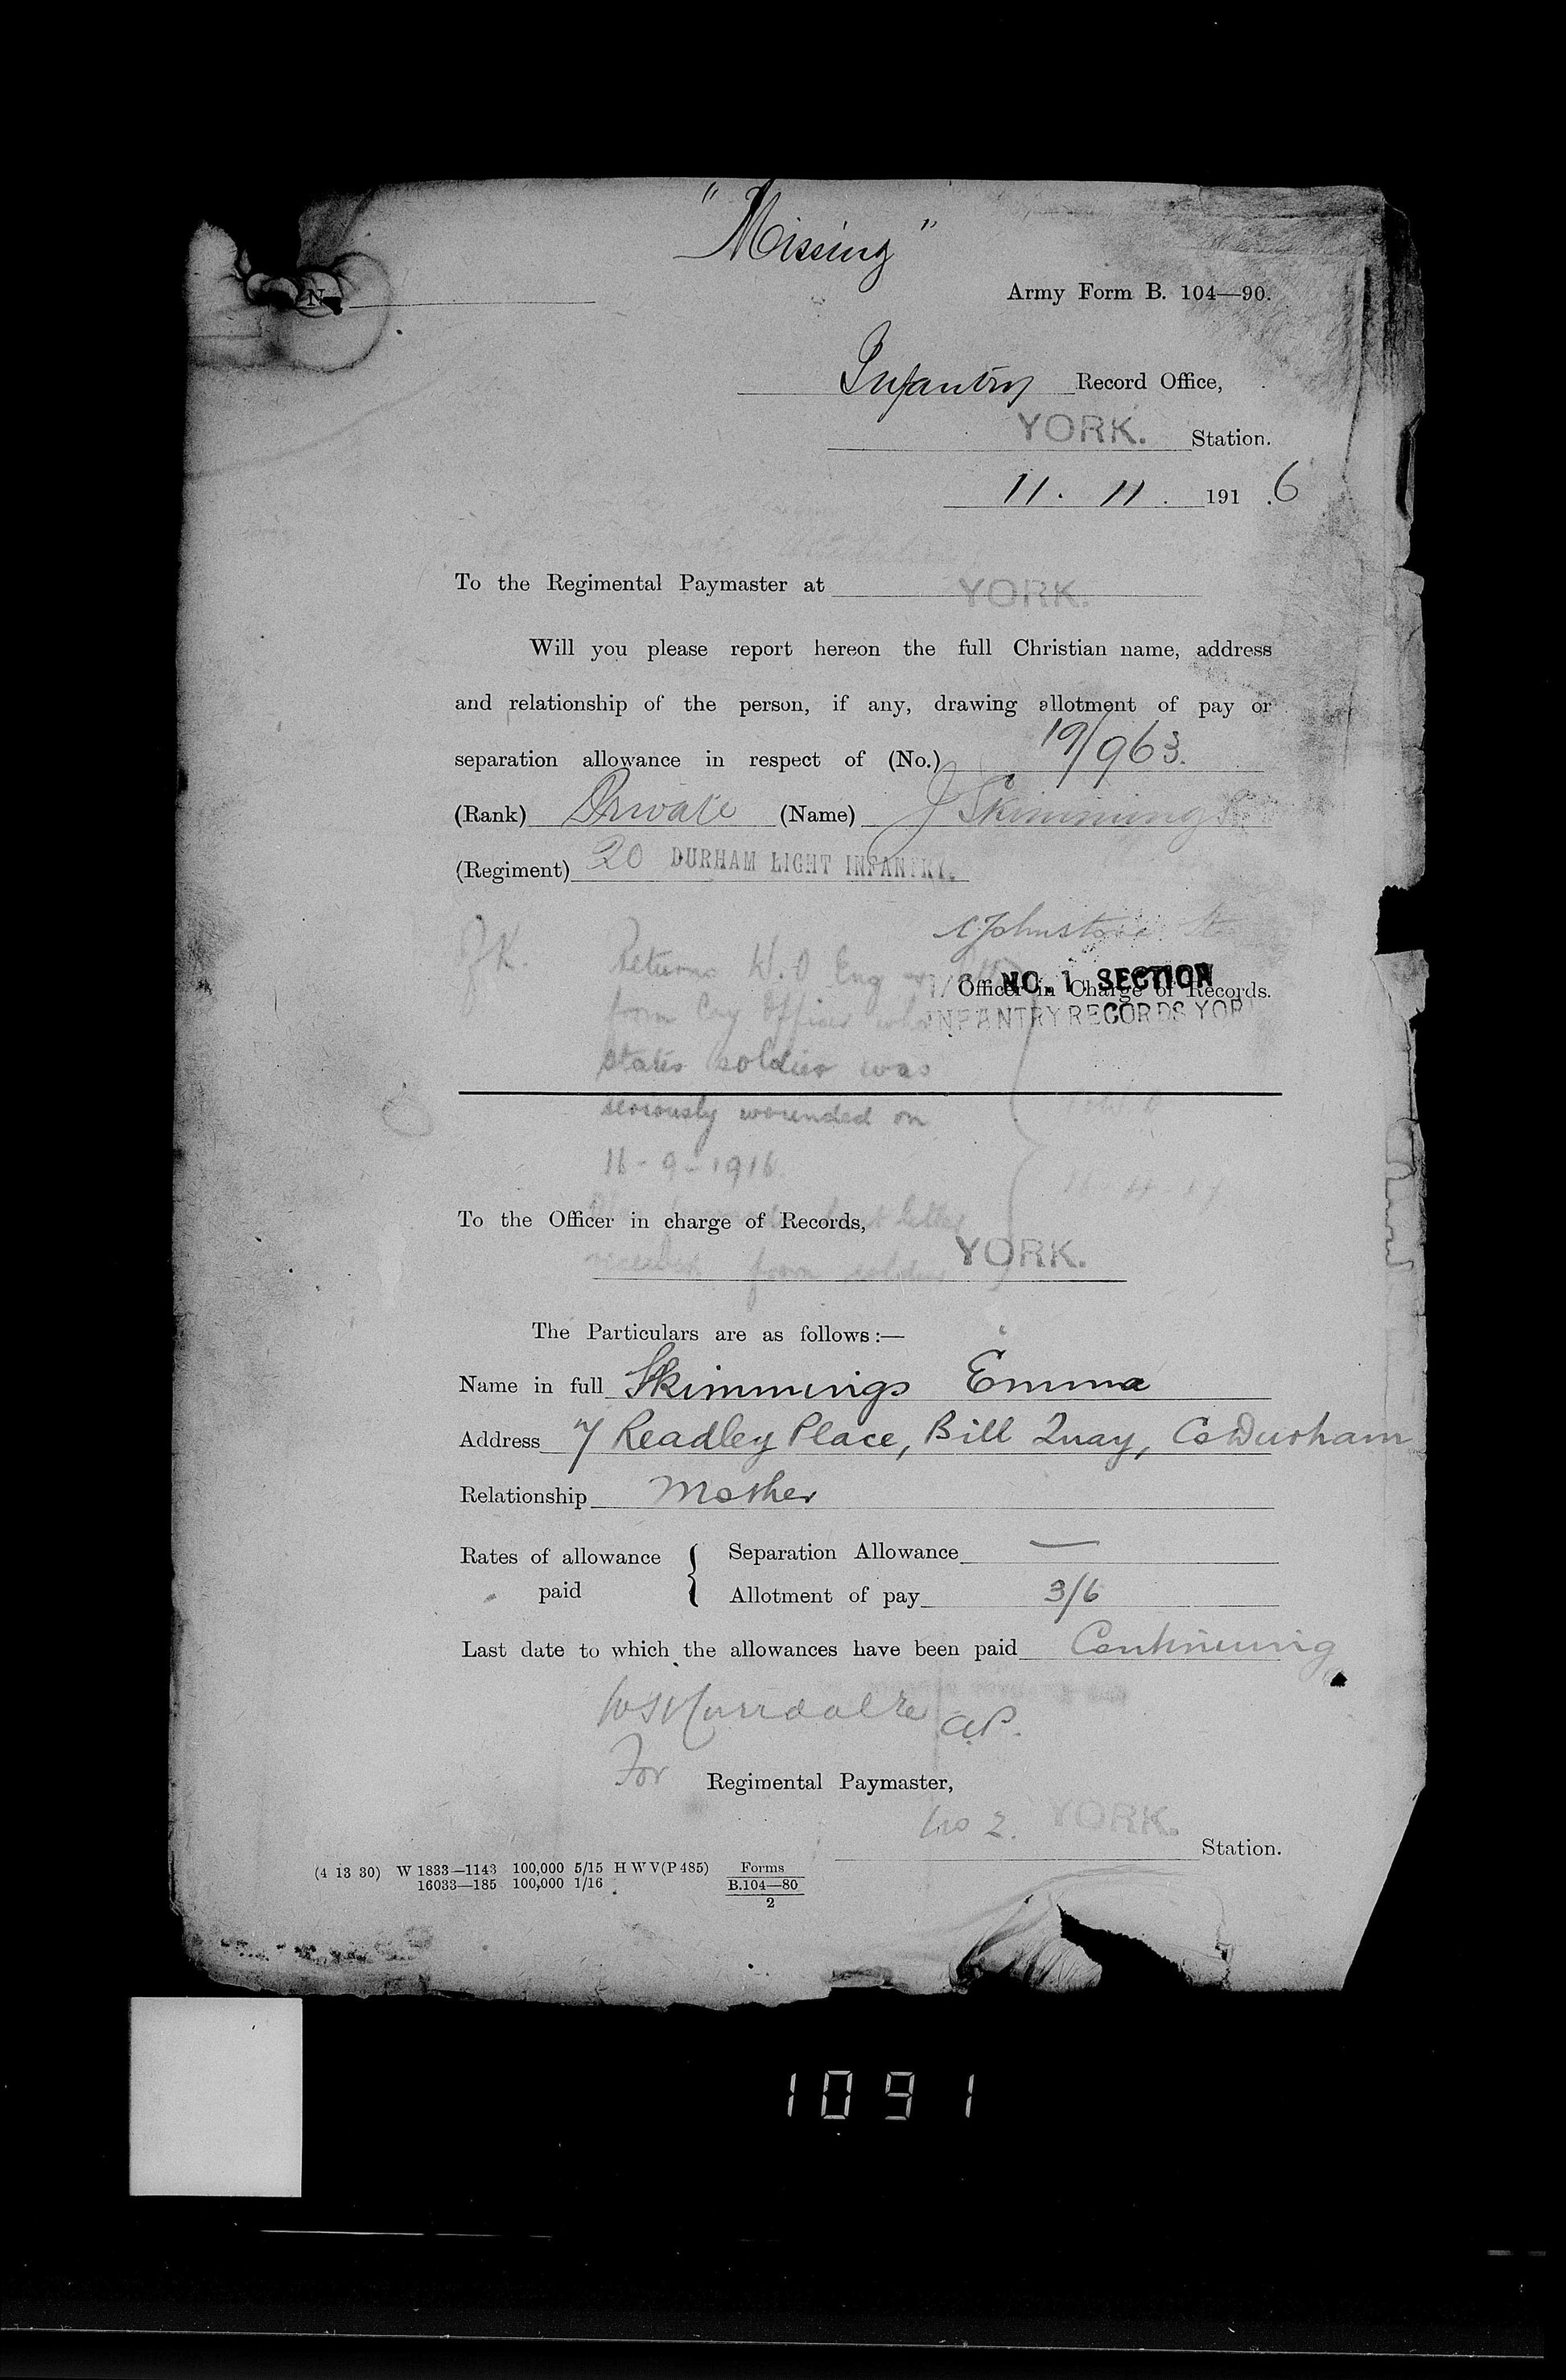 "Missing"
N
Army Form B. 104—90.
Infantry Record Office,
YORK. Station.
11. 11. 191 .6
To the Regimental Paymaster at YORK.
Will you please report hereon the full Christian name, address
and relationship of the person, if any, drawing allotment of pay or
separation allowance in respect of (No.) 19/963.
(Rank) Private (Name) J Skimmings
(Regiment) 20 DURHAM LIGHT INFANTRY.
Johnstone
Returns W.O Eng
NO. 1 SECTION
Officer in Charge of Records.
from Coy Officer who
INFANTRY RECORDS YOR
states soldier was
seriously wounded on
16-9-1916
To the Officer in charge of Records,
letter
YORK.
received from soldier
The Particulars are as follows:—
Name in full Skimmings Emma
Address 7 Readley Place, Bill Quay, Co Durham
Relationship Mother
Rates of allowance paid
Separation Allowance —
Allotment of pay 3/6
Last date to which the allowances have been paid Continuing
A.P.
For Regimental Paymaster,
No 2. YORK. Station.
(4 13 30) W 1833—1143 100,000 5/15 H W V(P 485) Forms
16033—185 100,000 1/16 B.104—80
2
1091